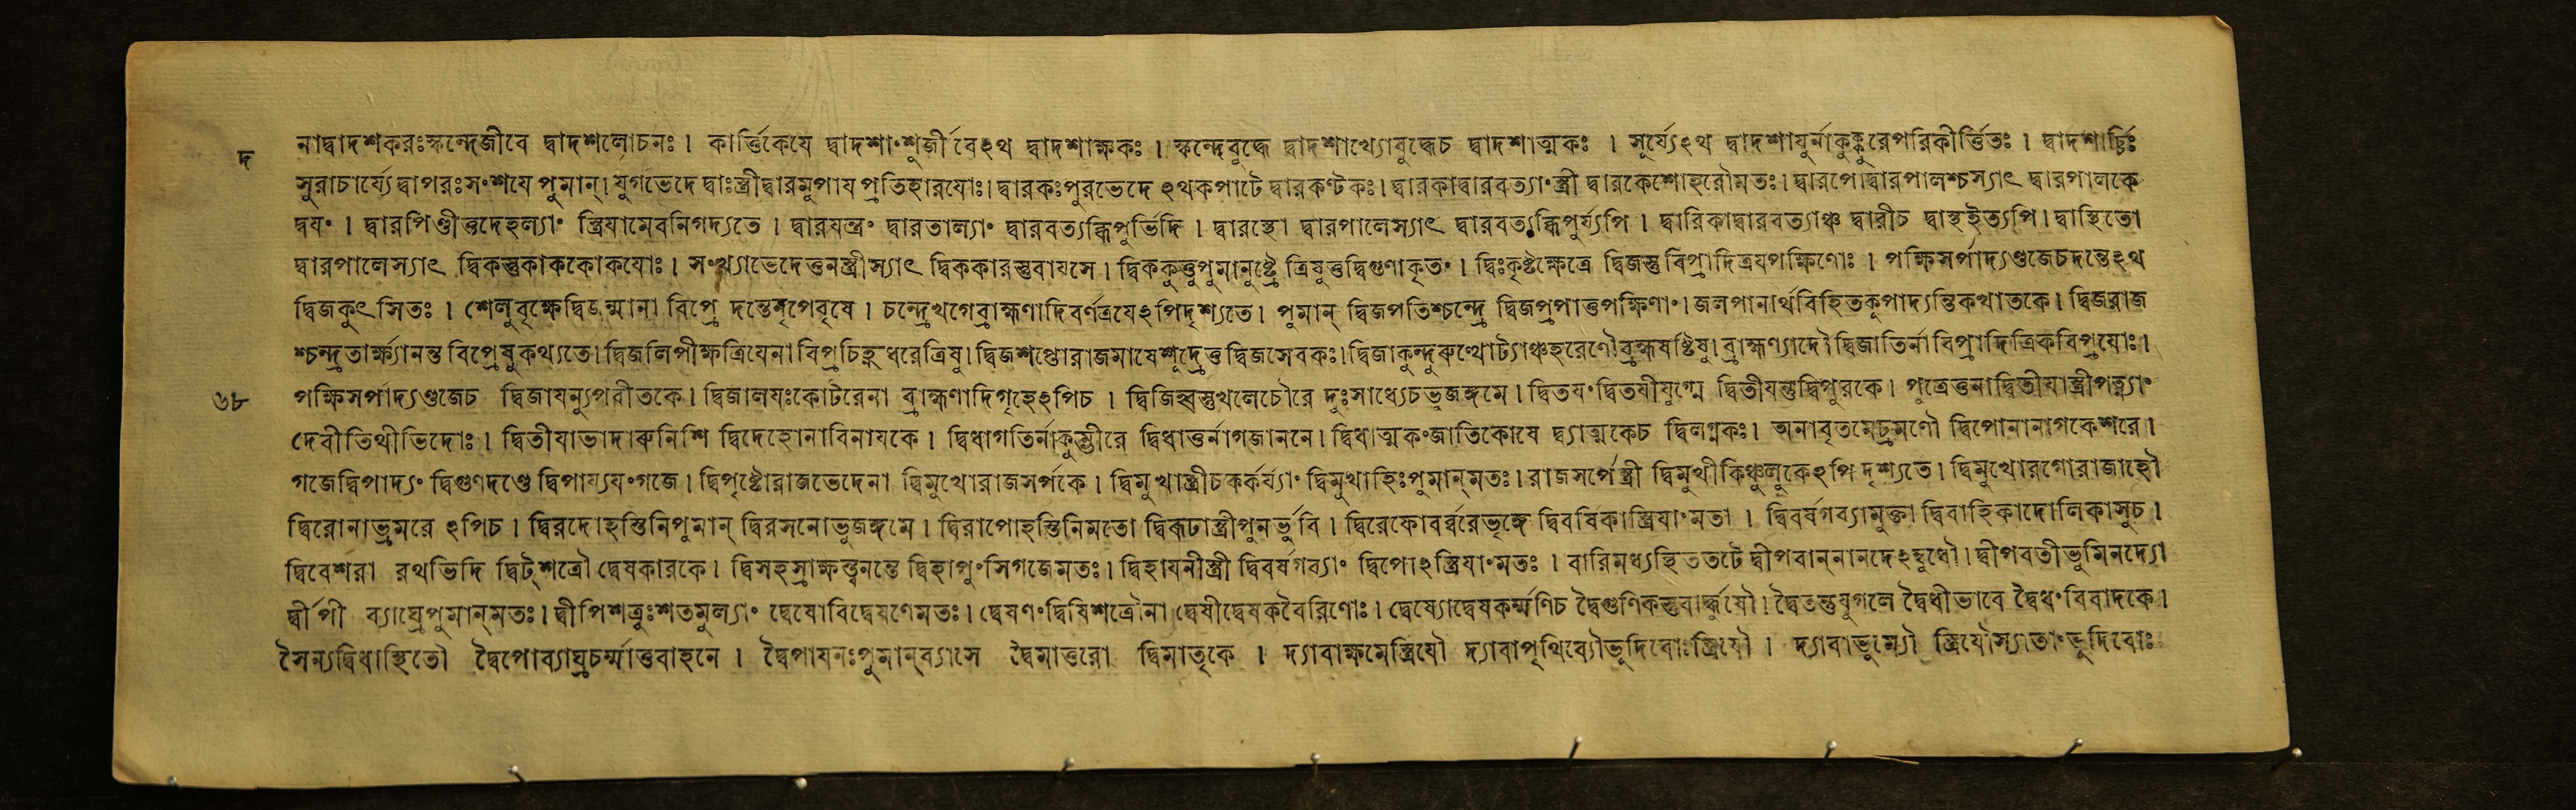 দ
নাদ্বাদশকরঃস্কন্দেজীবে দ্বাদশলোচনঃ । কার্ত্তিকেযে দ্বাদশাংশুর্জীবেঽথ দ্বাদশাক্ষকঃ । স্কন্দেবুদ্ধে দ্বাদশাখ্যোবুদ্ধেচ দ্বাদশাত্মকঃ । সূর্য্যেঽথ দ্বাদশাযুর্নাকুক্কুরেপরিকীর্ত্তিতঃ । দ্বাদশার্চ্চিঃ
সুরাচার্য্যেদ্বাপরঃসংশযে পুমান্। যুগভেদে দ্বাঃস্ত্রীদ্বারমূপায প্রতিহারযোঃ। দ্বারকঃপুরভেদে ঽথকপাটে দ্বারকণ্টকঃ। দ্বারকাদ্বারবত্যাংস্ত্রী দ্বারকেশোহরৌমতঃ। দ্বারপোদ্বারপালশ্চস্যাৎ দ্বারপালকে
দ্বযং । দ্বারপিণ্ডীত্তদেহল্যাং স্ত্রিযামেবনিগদ্যতে । দ্বারযন্ত্রং দ্বারতাল্যাং দ্বারবত্যব্ধিপুর্ভিদি । দ্বারস্থো দ্বারপালেস্যাৎ দ্বারবত্যব্ধিপুর্য্যপি । দ্বারিকাদ্বারবত্যাঞ্চ দ্বারীচ দ্বাস্থইত্যপি। দ্বাস্থিতো
দ্বারপালেস্যাৎ দ্বিকস্তুকাককোকযোঃ । সংখ্যাভেদেত্তনস্ত্রীস্যাৎ দ্বিককারস্তুবাযসে । দ্বিককুত্তুপুমানুষ্ট্রে ত্রিষুত্তদ্বিগুণাকৃতং । দ্বিঃকৃষ্টক্ষেত্রে দ্বিজস্তু বিপ্রাদিত্রযপক্ষিণোঃ । পক্ষিসর্পাদ্যণ্ডজেচদন্তেঽথ
দ্বিজকুৎসিতঃ । শেলুবৃক্ষেদ্বিজন্মানা বিপ্রে দন্তেনৃপেবৃষে । চন্দ্রেখগেব্রাহ্মণাদিবর্ণত্রযেঽপিদৃশ্যতে। পুমান্ দ্বিজপতিশ্চন্দ্রে দ্বিজপ্রপাত্তপক্ষিণাং। জলপানার্থবিহিতকূপাদ্যন্তিকখাতকে। দ্বিজরাজ
শ্চন্দ্রতার্ক্ষ্যানন্ত বিপ্রেষুকথ্যতে। দ্বিজলিপীক্ষত্রিযেনা বিপ্রচিহ্নধরেত্রিষু। দ্বিজশপ্তোরাজমাষেশূদ্রেত্ত দ্বিজসেবকঃ। দ্বিজাকুন্দুরুণ্থোট্যাঞ্চহরেণৌব্রহ্মযষ্টিষু। ব্রাহ্মণ্যাদৌদ্বিজাতির্নাবিপ্রাদিত্রিকবিপ্রযোঃ।
৬৮
পক্ষিসর্পাদ্যণ্ডজেচ দ্বিজাযন্যুপবীতকে। দ্বিজালযঃকোটরেনা ব্রাহ্মণাদিগৃহেঽপিচ । দ্বিজিহ্বস্তুখলেচৌরে দুঃসাধ্যেচভুজঙ্গমে । দ্বিতযংদ্বিতযীযুগ্মে দ্বিতীযন্তুদ্বিপুরকে। পুত্রেত্তনাদ্বিতীযাস্ত্রীপত্ন্যাং
দেবীতিথীভিদোঃ। দ্বিতীযাভাদারুনিশি দ্বিদেহোনাবিনাযকে । দ্বিধাগতির্নাকুম্ভীরে দ্বিধাত্তর্নাগজাননে। দ্বিধাত্মকংজাতিকোষে দ্ব্যাত্মকেচ দ্বিলগ্নকঃ। অনাবৃতমেঢ্রমণৌ দ্বিপোনানাগকেশরে।
গজেদ্বিপাদ্যং দ্বিগুণদণ্ডে দ্বিপায্যযংগজে। দ্বিপৃষ্টোরাজভেদেনা দ্বিমুখোরাজসর্পকে। দ্বিমুখাস্ত্রীচকর্কর্য্যাং দ্বিমুখাহিঃপুমান্‌মতঃ। রাজসর্পেস্ত্রী দ্বিমুখীকিঞ্চুলুকেঽপি দৃশ্যতে। দ্বিমুখোরগোরাজাহৌ
দ্বিরোনাভ্রমরে ঽপিচ । দ্বিরদোহস্তিনিপুমান্ দ্বিরসনোভুজঙ্গমে। দ্বিরাপোহস্তিনিমতো দ্বিরূঢাস্ত্রীপুনর্ভুবি । দ্বিরেফোবর্ব্বরেভৃঙ্গে দ্বিবর্ষিকাস্ত্রিযাংমতা । দ্বিবর্ষগব্যামুক্তা দ্বিবাহিকাদোলিকাসুচ ।
দ্বিবেশরা রথভিদি দ্বিট্‌শত্রৌ দ্বেষকারকে। দ্বিসহস্রাক্ষস্ত্বনন্তে দ্বিহাপুংসিগজেমতঃ। দ্বিহাযনীস্ত্রী দ্বিবর্ষগব্যাং দ্বিপোঽস্ত্রিযাংমতঃ । বারিমধ্যস্থিততটে দ্বীপবান্‌নানদেঽম্বুধৌ। দ্বীপবতীভুমিনদ্যো
দ্বীর্পী ব্যাঘ্রেপুমান্‌মতঃ। দ্বীপিশত্রুঃশতমুল্যাং দ্বেষোবিদ্বেষণেমতঃ। দ্বেষণংদ্বিষিশত্রৌনা দ্বেষীদ্বেষকবৈরিণোঃ। দ্বেষ্যোদ্বেষকর্ম্মণিচ দ্বৈগুণিকস্তুবার্দ্ধুষৌ। দ্বৈতন্তুযুগলে দ্বৈধীভাবে দ্বৈধংবিবাদকে।
সৈন্যদ্বিধাস্থিতৌ দ্বৈপোব্যাঘ্রচর্ম্মাত্তবাহনে । দ্বৈপাযনঃপুমান্‌ব্যাসে দ্বৈমাত্তরো দ্বিমাতৃকে । দ্যাবাক্ষমেস্ত্রিযৌ দ্যাবাপৃথিব্যৌভুদিবোঃস্ত্রিযৌ । দ্যাবাভুম্যৌ স্ত্রিযৌস্যাতাংভুদিবোঃ